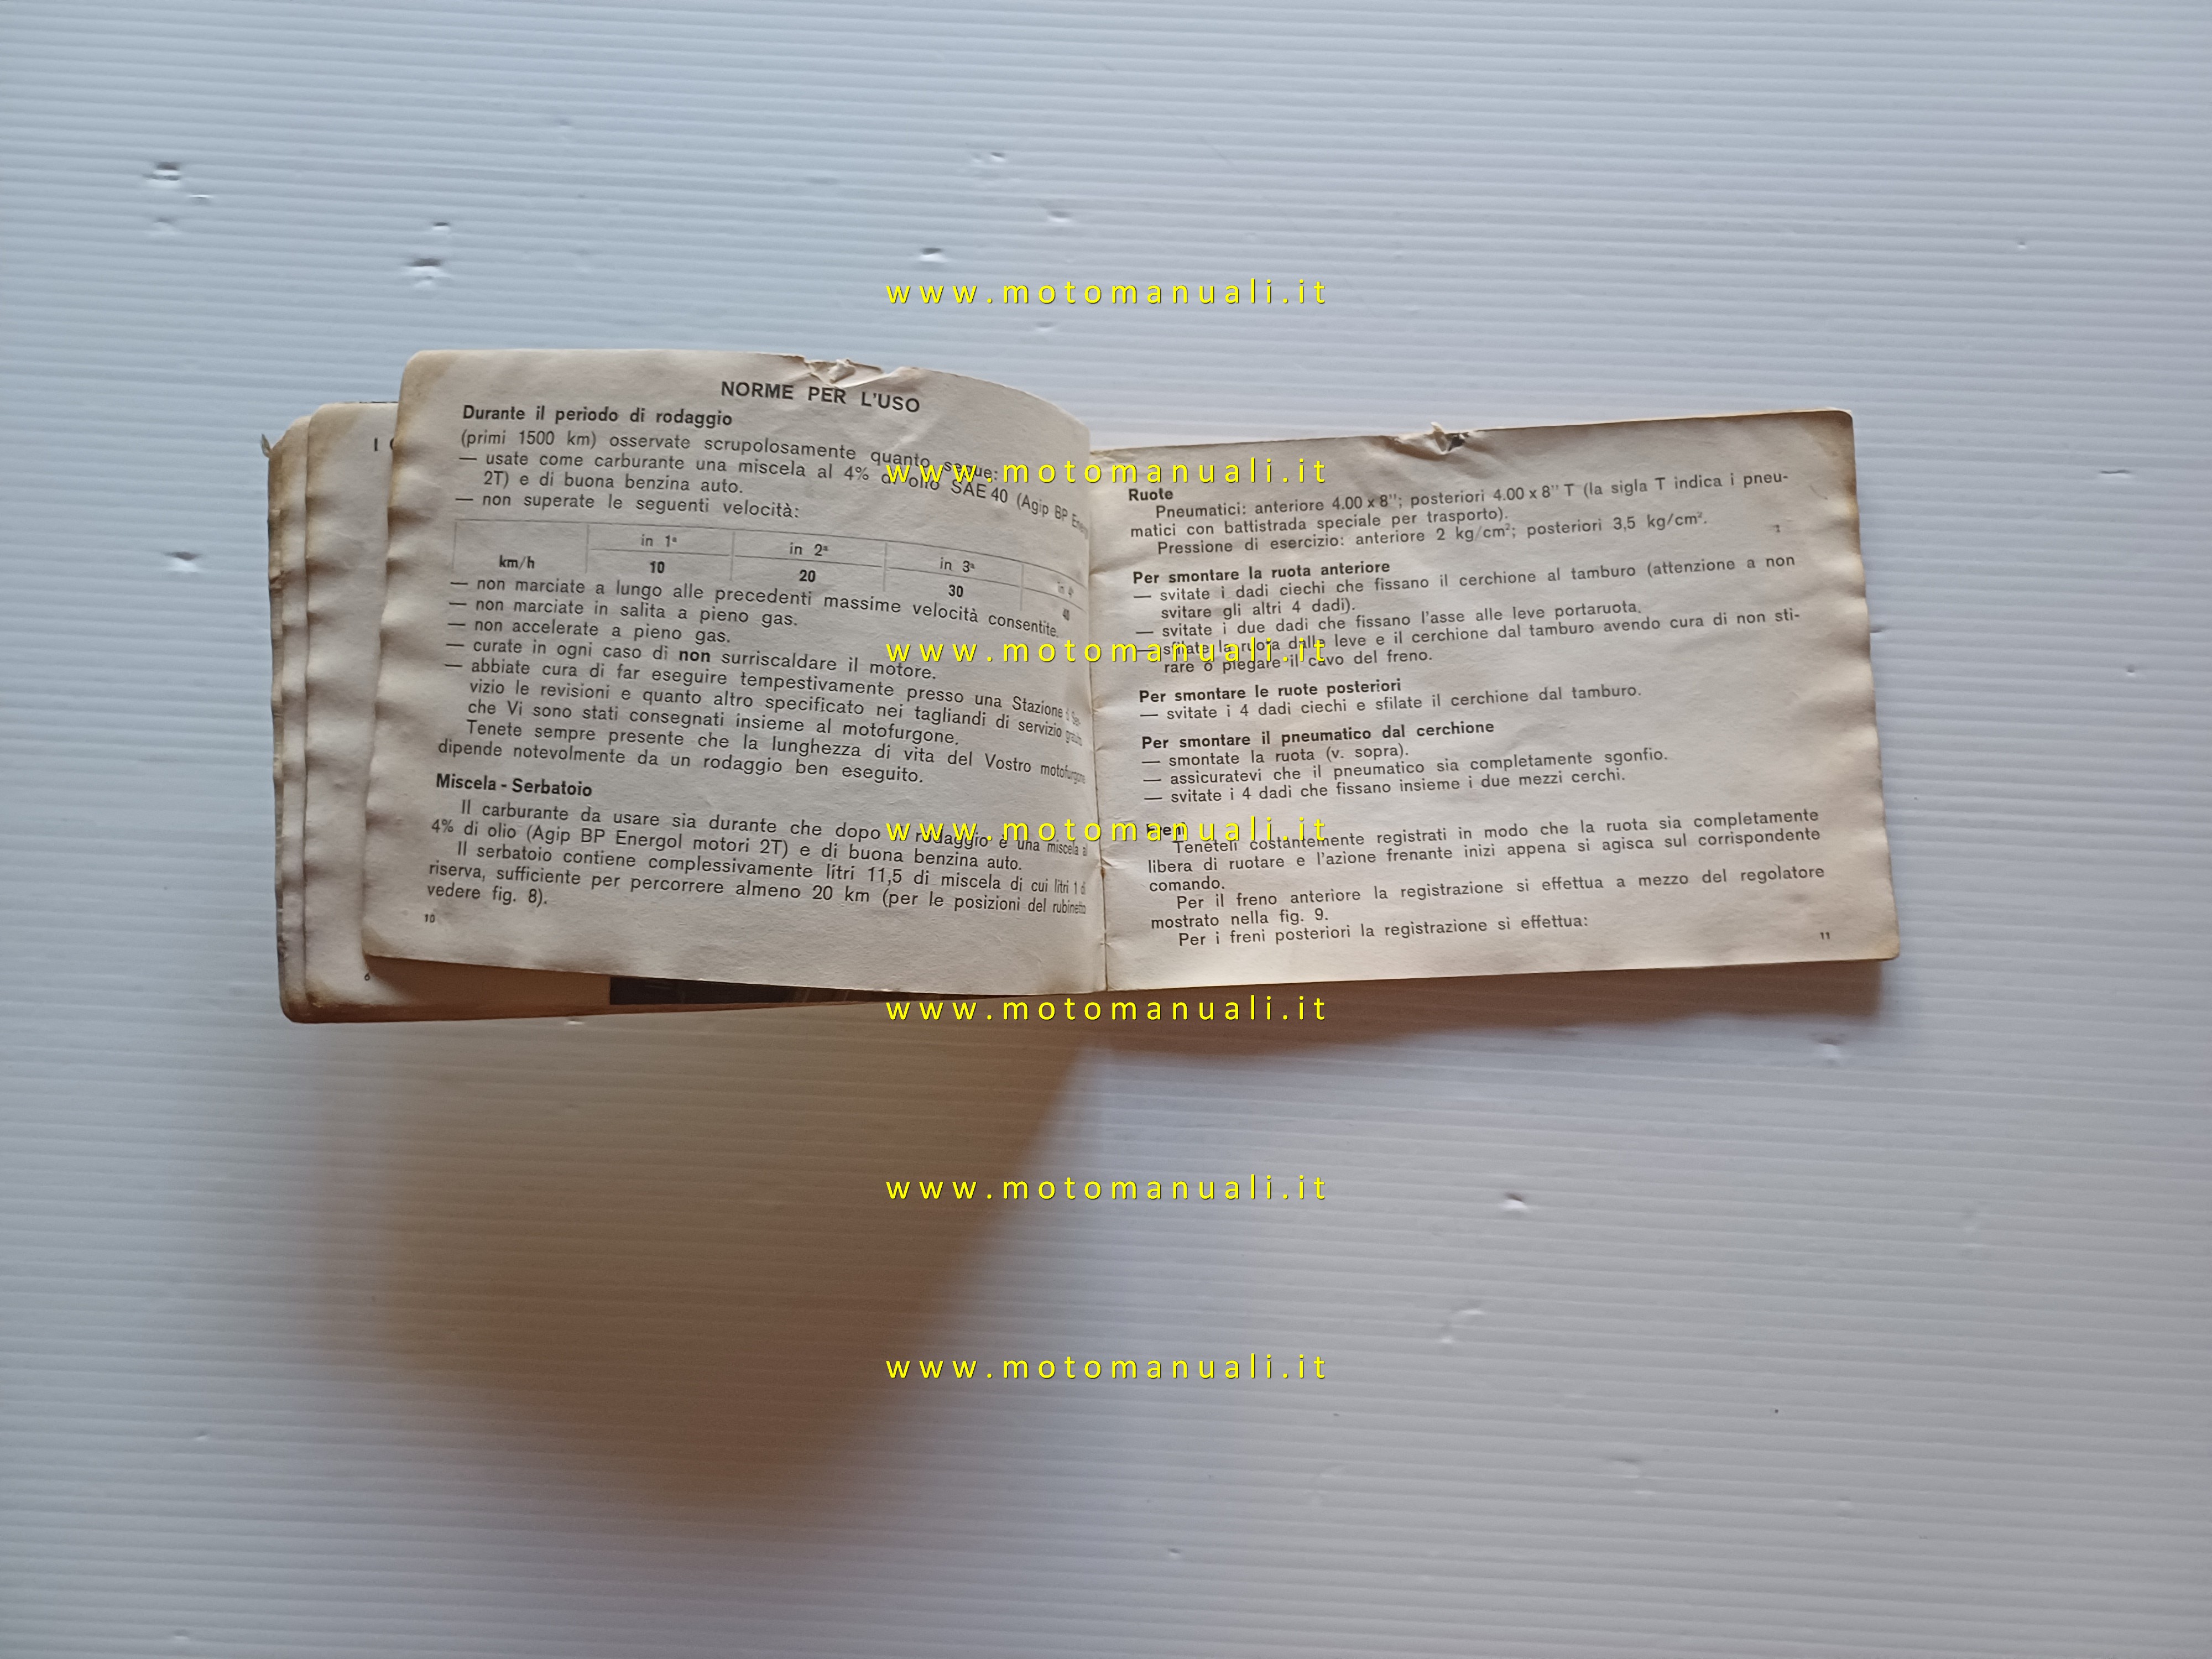 www.motomanuali.it
NORME PER L'USO
Durante il periodo di rodaggio
(primi 1500 km) osservate scrupolosamente quanto segue:
— usate come carburante una miscela al 4% di olio SAE 40 (Agip BP
2T) e di buona benzina auto.
— non superate le seguenti velocità:
in 1ª in 2ª in 3ª in 4ª
km/h 10 20 30 40
— non marciate a lungo alle precedenti massime velocità consentite.
— non marciate in salita a pieno gas.
— non accelerate a pieno gas.
— curate in ogni caso di non surriscaldare il motore.
— abbiate cura di far eseguire tempestivamente presso una Stazione
vizio le revisioni e quanto altro specificato nei tagliandi di servizio
che Vi sono stati consegnati insieme al motofurgone.
Tenete sempre presente che la lunghezza di vita del Vostro motofurgone
dipende notevolmente da un rodaggio ben eseguito.
Miscela - Serbatoio
Il carburante da usare sia durante che dopo il rodaggio è una miscela al
4% di olio (Agip BP Energol motori 2T) e di buona benzina auto.
Il serbatoio contiene complessivamente litri 11,5 di miscela di cui litri 1 di
riserva, sufficiente per percorrere almeno 20 km (per le posizioni del rubinetto
vedere fig. 8).
10
6
Ruote
Pneumatici: anteriore 4.00 x 8"; posteriori 4.00 x 8" T (la sigla T indica i pneu-
matici con battistrada speciale per trasporto).
Pressione di esercizio: anteriore 2 kg/cm²; posteriori 3,5 kg/cm².
Per smontare la ruota anteriore
— svitate i dadi ciechi che fissano il cerchione al tamburo (attenzione a non
svitare gli altri 4 dadi).
— svitate i due dadi che fissano l'asse alle leve portaruota.
— sfilate la ruota dalle leve e il cerchione dal tamburo avendo cura di non sti-
rare o piegare il cavo del freno.
Per smontare le ruote posteriori
— svitate i 4 dadi ciechi e sfilate il cerchione dal tamburo.
Per smontare il pneumatico dal cerchione
— smontate la ruota (v. sopra).
— assicuratevi che il pneumatico sia completamente sgonfio.
— svitate i 4 dadi che fissano insieme i due mezzi cerchi.
Freni
Teneteli costantemente registrati in modo che la ruota sia completamente
libera di ruotare e l'azione frenante inizi appena si agisca sul corrispondente
comando.
Per il freno anteriore la registrazione si effettua a mezzo del regolatore
mostrato nella fig. 9.
Per i freni posteriori la registrazione si effettua:
11
www.motomanuali.it
www.motomanuali.it
www.motomanuali.it
www.motomanuali.it
www.motomanuali.it
www.motomanuali.it